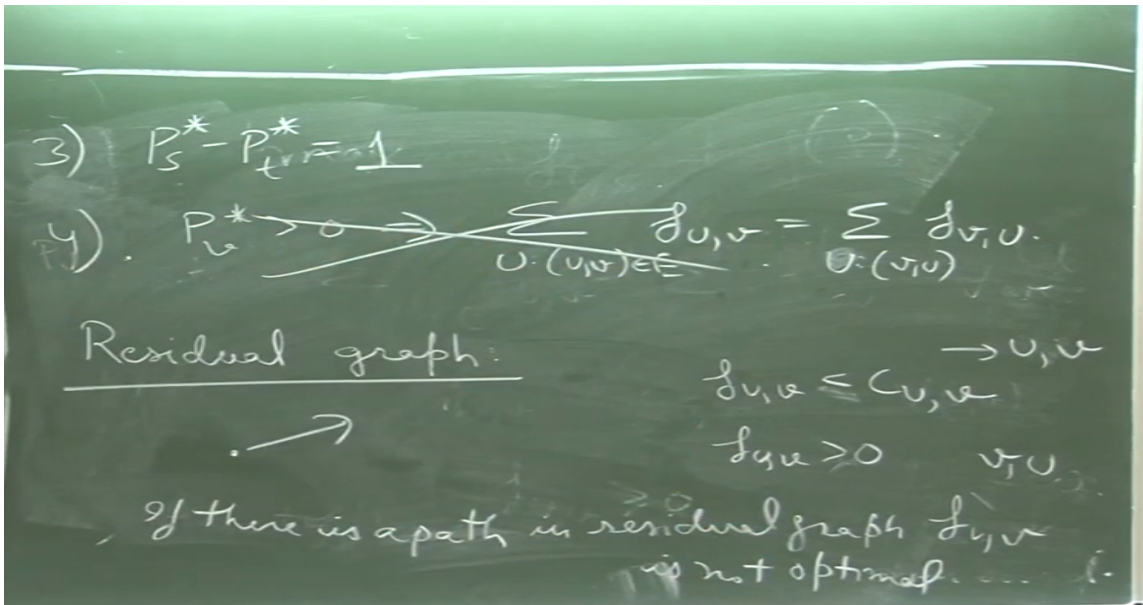 3) P_s^* - P_t^* = 1
4). P_v^* > 0 ⇒ Σ_{U:(U,v)∈E} f_{U,v} = Σ_{U:(v,U)} f_{v,U}.
Residual graph:
→ U,v
f_{U,v} ≤ C_{U,v}
f_{U,v} > 0 v,U
≥ 0
If there is a path in residual graph f_{U,v}
is not optimal....